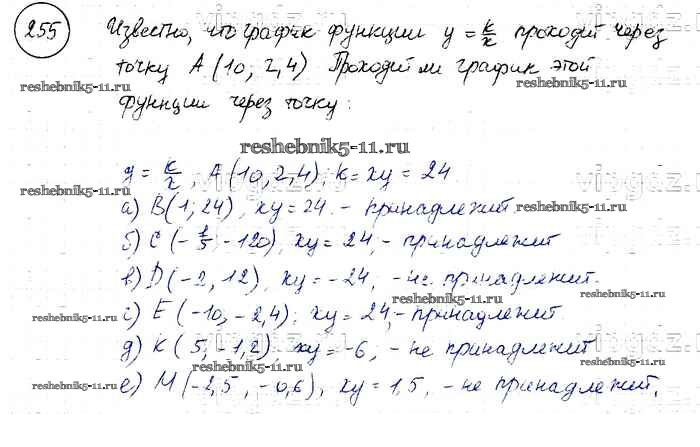 255 Известно, что график функции y = k/x проходит через
точку A (10; 2,4) Проходит ли график этой
функции через точку:
reshebnik5-11.ru
reshebnik5-11.ru
reshebnik5-11.ru
reshebnik5-11.ru
y = k/x, A (10, 2,4); k = xy = 24
а) B(1, 24), xy = 24 - принадлежит.
б) C (-1/5, -120), xy = 24, - принадлежит
в) D (-2, 12), xy = -24, - не принадлежит.
с) E (-10, -2,4); xy = 24, - принадлежит
д) K ( 5, -1,2), xy = -6, - не принадлежит
е) M (-2,5, -0,6), xy = 1,5, - не принадлежит,
reshebnik5-11.ru
reshebnik5-11.ru
reshebnik5-11.ru
reshebnik5-11.ru
reshebnik5-11.ru